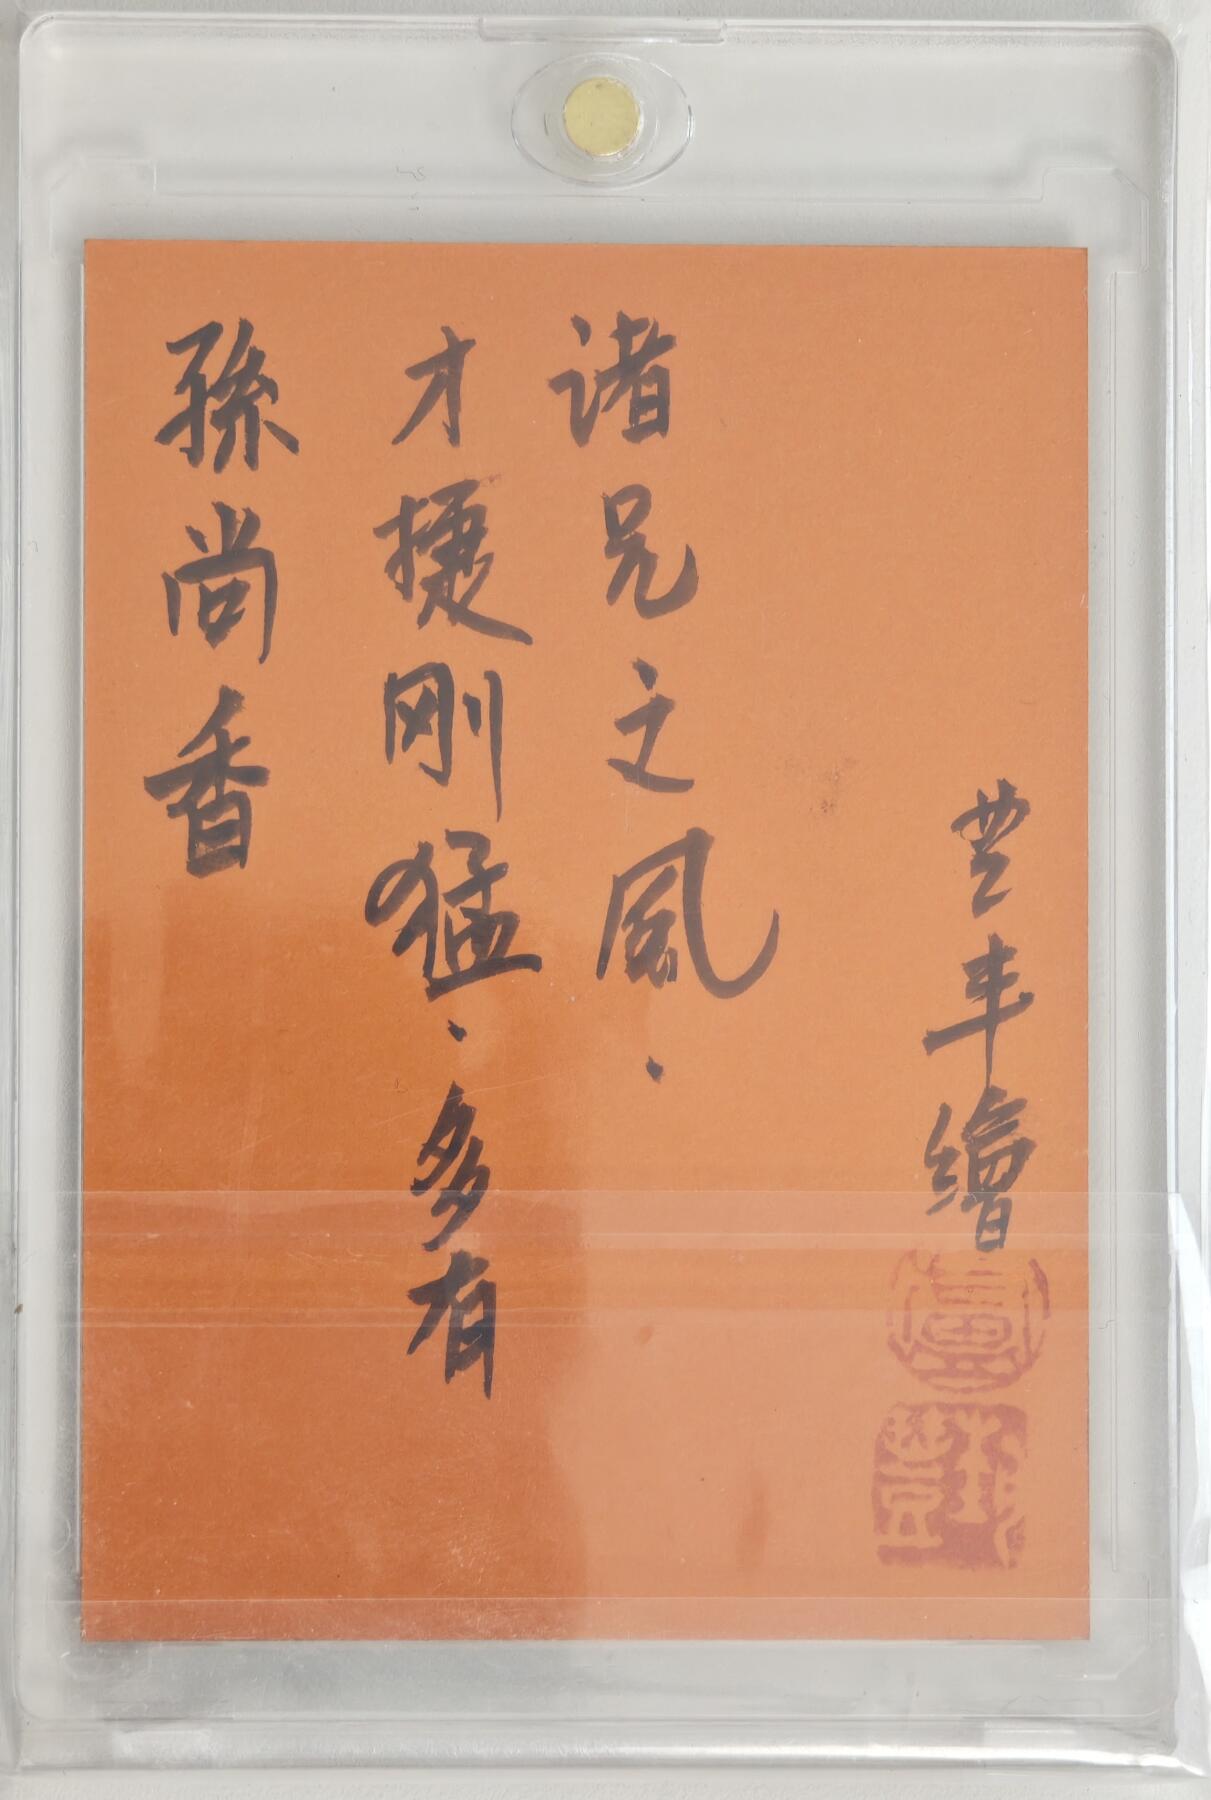 孫尚香
才捷刚猛·多有
诸兄之風·
丰繪